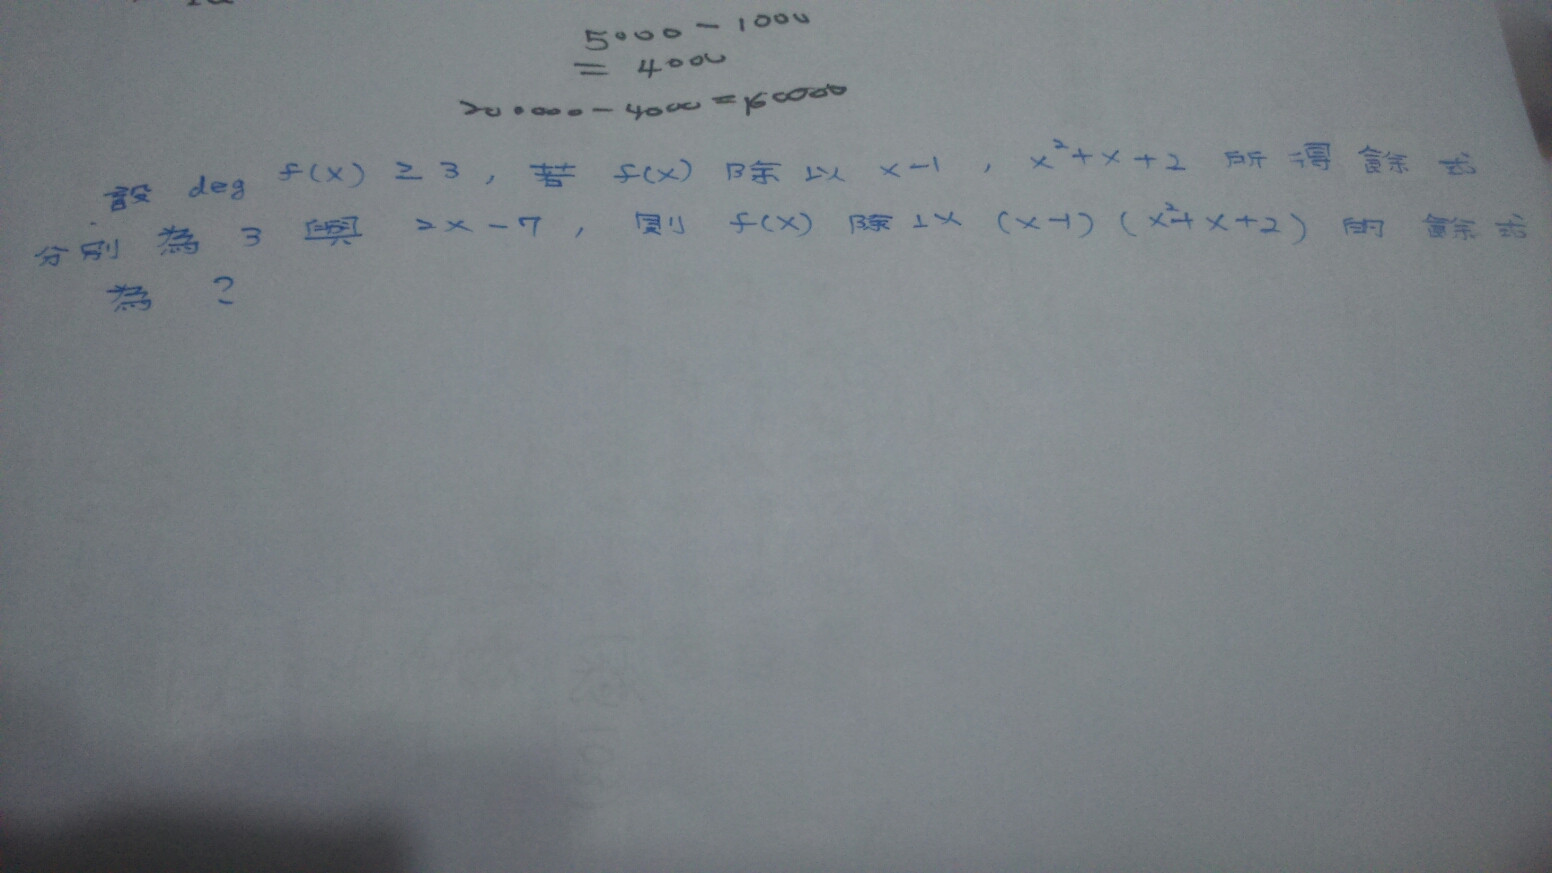 5000-1000
= 4000
200000-4000=160000
設 deg f(x) ≥ 3, 若 f(x) 除以 x-1, x²+x+2 所得餘式
分別為 3 與 2x-7, 則 f(x) 除以 (x-1)(x²+x+2) 的餘式
為?